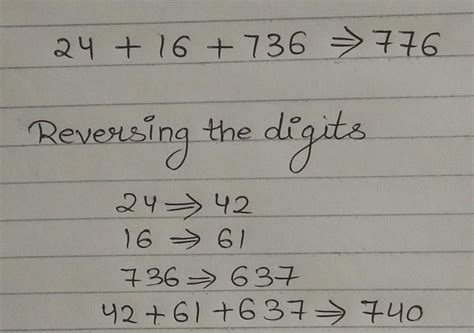 24 + 16 + 736 ⇒ 776
Reversing the digits
24 ⇒ 42
16 ⇒ 61
736 ⇒ 637
42 + 61 + 637 ⇒ 740